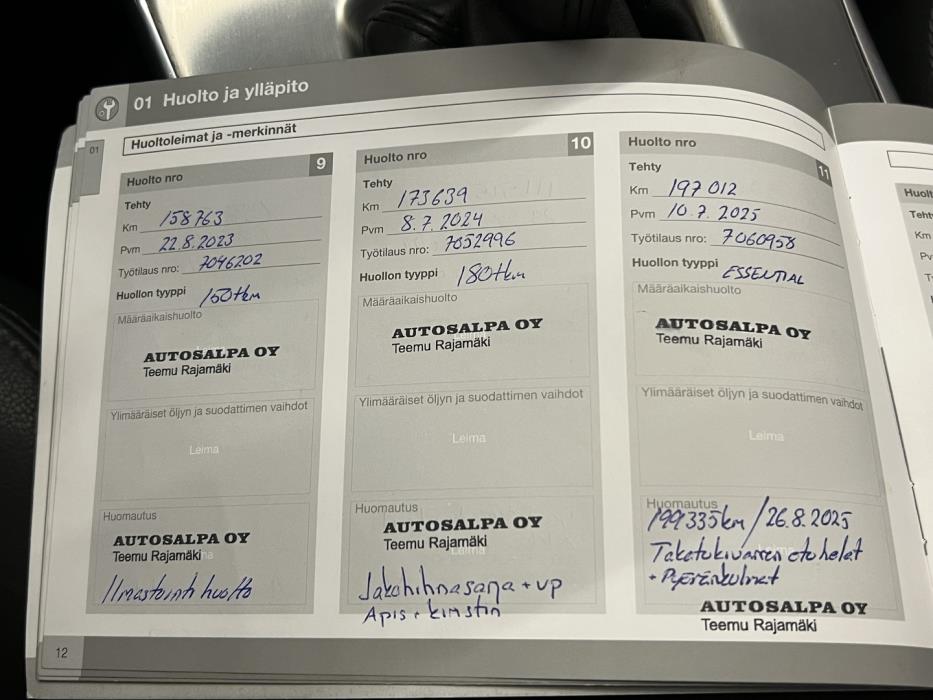 01 Huolto ja ylläpito
Huoltoleimat ja -merkinnät
01
Huolto nro 9
Tehty
Km 158763
Pvm 22.8.2023
Työtilaus nro: 7046202
Huollon tyyppi 150tkm
Määräaikaishuolto
AUTOSALPA OY
Teemu Rajamäki
Ylimääräiset öljyn ja suodattimen vaihdot
Leima
Huomautus
AUTOSALPA OY
Teemu Rajamäki
Ilmastointi huolto
12
Huolto nro 10
Tehty
Km 173639
Pvm 8.7.2024
Työtilaus nro: 7052996
Huollon tyyppi 180tkm
Määräaikaishuolto
AUTOSALPA OY
Teemu Rajamäki
Ylimääräiset öljyn ja suodattimen vaihdot
Leima
Huomautus
AUTOSALPA OY
Teemu Rajamäki
Jakohihnasarja + vp
Apis + kiristin
Huolto nro 11
Tehty
Km 197 012
Pvm 10.7.2025
Työtilaus nro: 7060958
Huollon tyyppi ESSENTIAL
Määräaikaishuolto
AUTOSALPA OY
Teemu Rajamäki
Ylimääräiset öljyn ja suodattimen vaihdot
Leima
Huomautus
199335km / 26.8.2025
Takatukivarren etuhelat
+ Pyöränkulmat
AUTOSALPA OY
Teemu Rajamäki
Huolt
Teht
Km
Pv